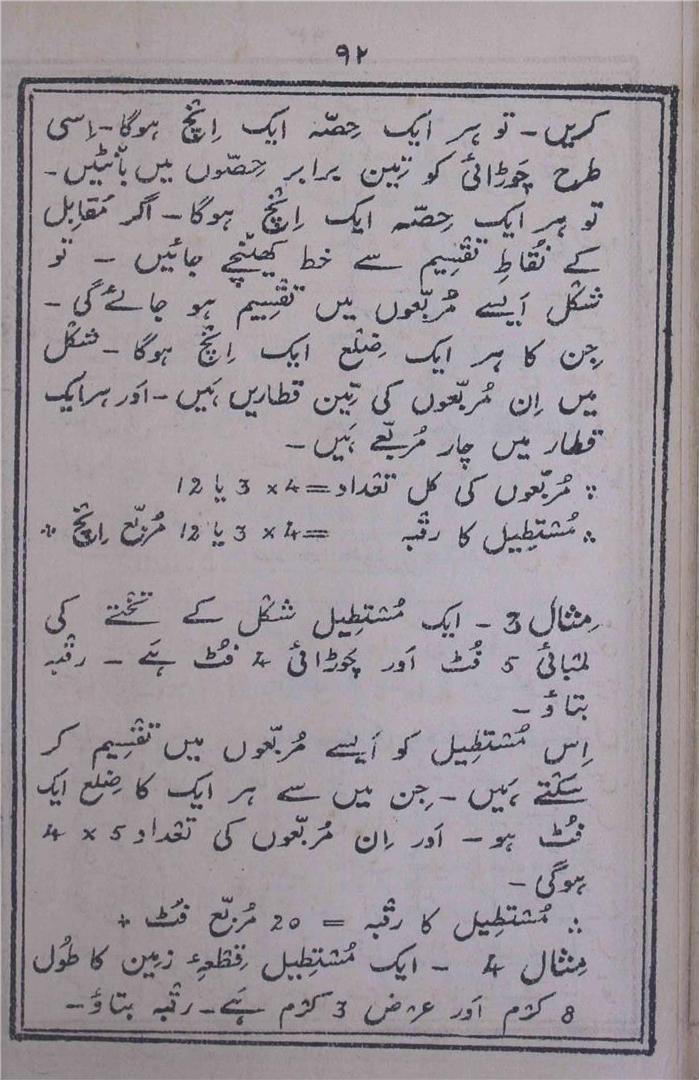 ۹۲
کریں۔ تو ہر ایک حِصّہ ایک اِنْچ ہوگا۔ اِسی
طرح چَوڑائی کو تِین برابر حِصّوں میں بانٹیں۔
تو ہر ایک حِصّہ ایک اِنْچ ہوگا۔ اگر مُقابِل
کے نُقاطِ تقْسِیم سے خط کھینْچے جائیں ۔ تو
شکْل اَیسے مُربّعوں میں تقْسِیم ہو جائے گی۔
جِن کا ہر ایک ضِلْع ایک اِنْچ ہوگا ۔ شکْل
میں اِن مُربّعوں کی تِین قطاریں ہَیں۔ اَور ہر ایک
قطار میں چار مُربّعے ہَیں۔
∵ مُربّعوں کی کل تعْداد = 4 × 3 یا 12
∴ مُسْتطِیل کا رقْبہ = 4 × 3 یا 12 مُربّع اِنْچ +
مِثال 3 ۔ ایک مُسْتطِیل شکْل کے تخْتے کی
لمْبائی 5 فُٹ اَور چَوڑائی 4 فُٹ ہَے ۔ رقْبہ
بتاؤ۔
اِس مُسْتطِیل کو اَیسے مُربّعوں میں تقْسِیم کر
سکْتے ہَیں۔ جِن میں سے ہر ایک کا ضِلع ایک
فُٹ ہو۔ اَور اِن مُربّعوں کی تعْداد 5 × 4
ہوگی۔
∴ مُسْتطِیل کا رقْبہ = 20 مُربّع فُٹ +
مِثال 4 ۔ ایک مُسْتطِیل قِطْعۂ زمِین کا طُول
8 کرْم اَور عرْض 3 کرْم ہَے۔ رقْبہ بتاؤ۔